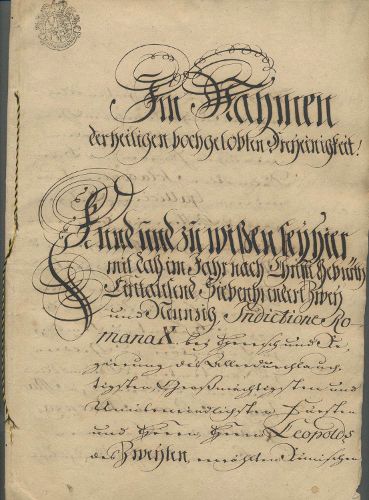 Im Nahmen
der heiligen hochgelobten Dreheinigkeit!
Kund und zu wißen seÿ hier
mit daß im Jahr nach Christi Gebürth
Eintausend Siebenhundert Zweÿ
und Neunzig Indictione Ro-
mana X. beÿ Herrsch und Re-
gierung des Allerdurchlauch-
tigsten Großmächtigsten und
Unüberwindlichsten Fürsten
und Herrn Herrn Leopolds
des Zweÿten, erwählten Römischen